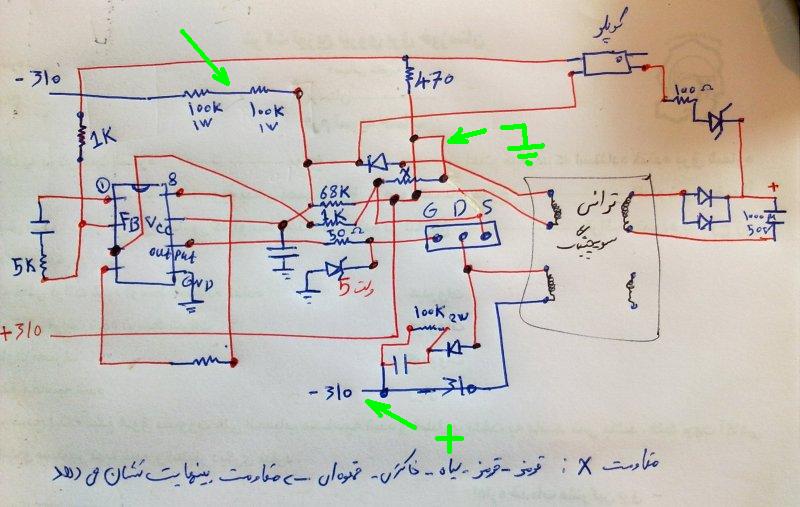 کوپلر
- 310
470
100Ω
100K
1W
100K
1W
1K
1
8
FB
Vcc
out put
GND
68K
X
1K
50Ω
G D S
ترانس
سوییچینگ
+
1000M
50V
5K
5 ولت
100K
2W
+310
- 310
- 310
+
مقاومت X : قرمز - قرمز - سیاه - خاکستری - قهوه‌ای → مقاومت بینهایت نشان می دهد